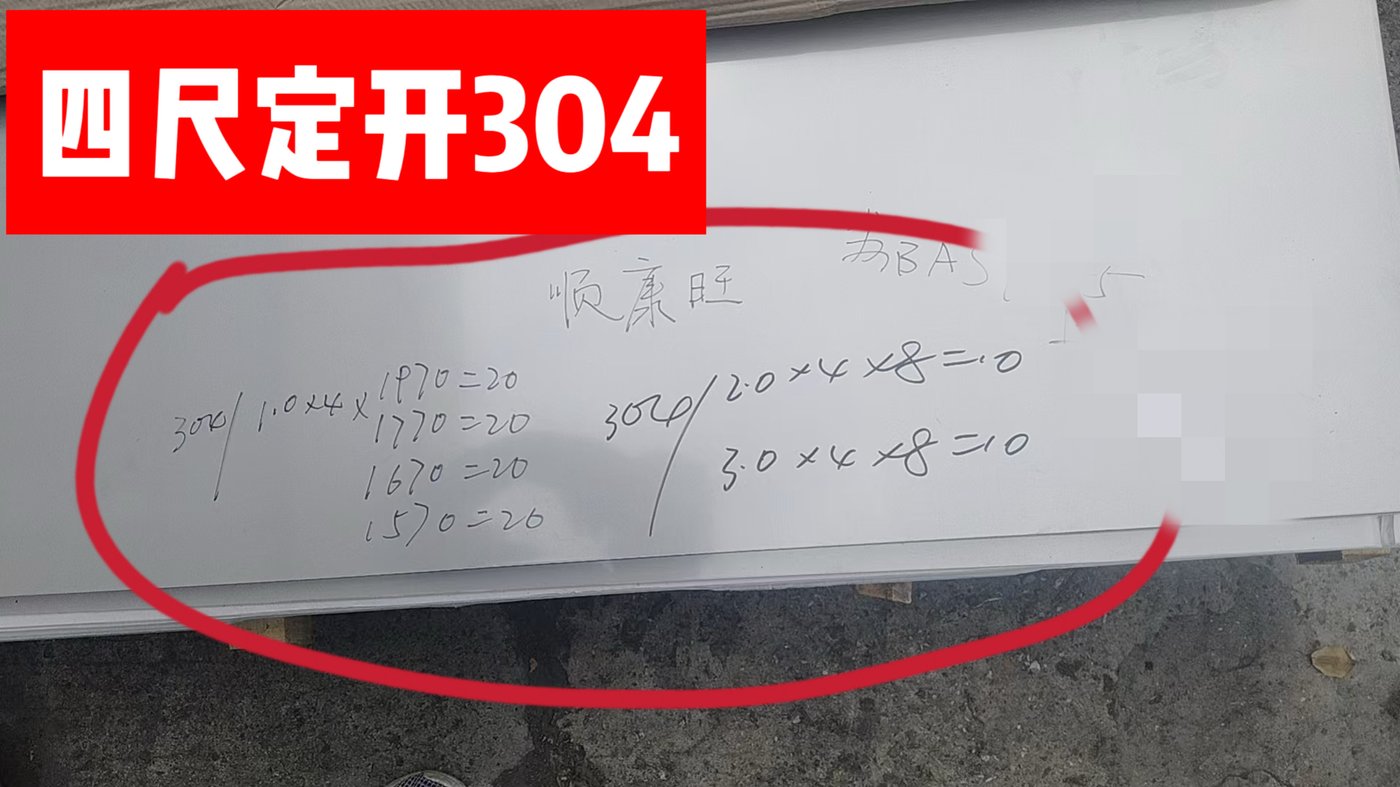 四尺定开304
顺康旺
304/1.0×4×1970=20
1770=20
1670=20
1570=20
304/2.0×4×8=10
3.0×4×8=10